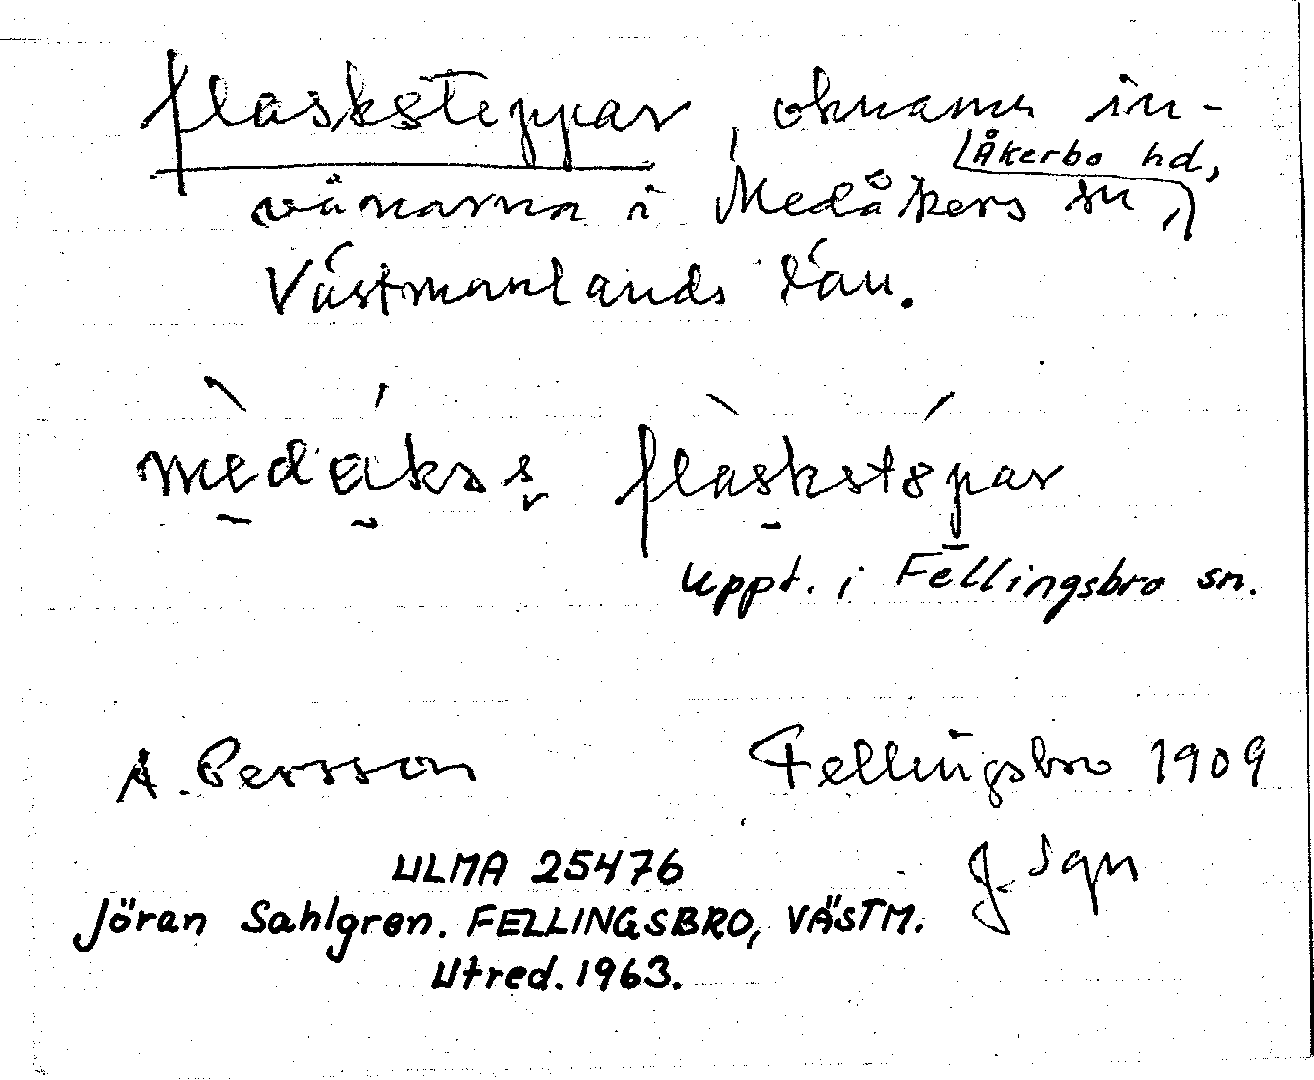 flasksteppar, öknamn in-
vånarna i Medåkers sn, Åkerbo hd,
Västmanlands län.
medåkss flaskstöpar
uppt. i Fellingsbro sn.
A. Persson Fellingsbro 1909
J. Sgn
ULMA 25476
Jöran Sahlgren. FELLINGSBRO, VÄSTM.
Utred. 1963.